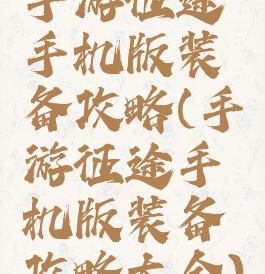 手游征途
手机版装
备攻略(手
游征途手
机版装备
攻略大全)